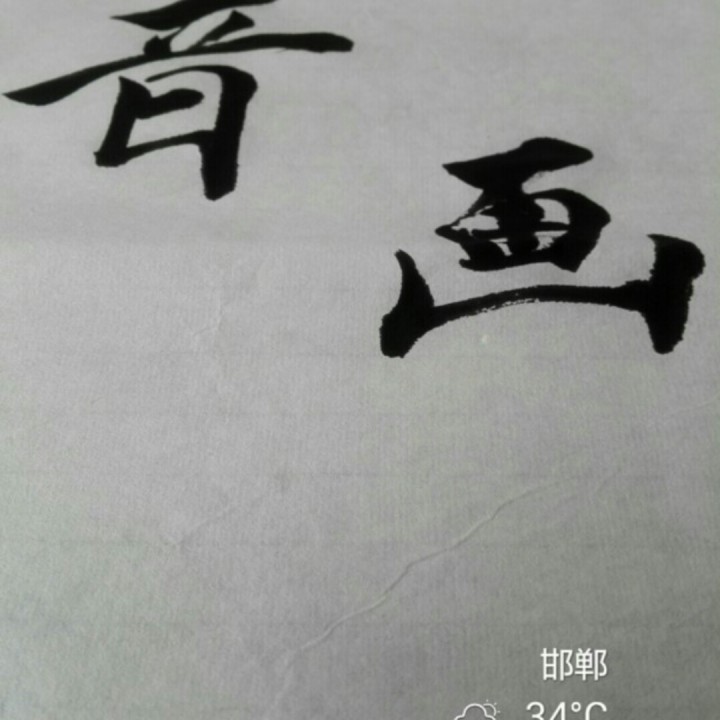 音
画
邯郸
34°C